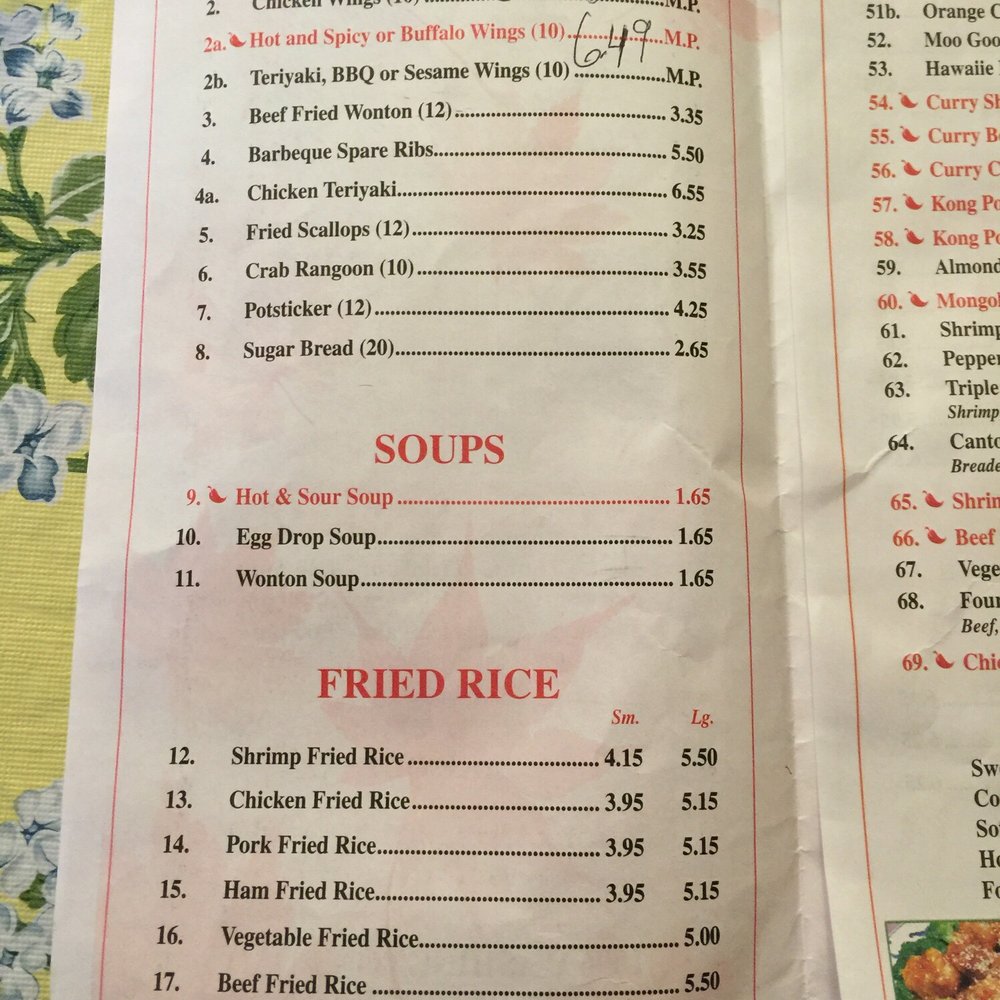 2. Chicken Wings (10) M.P.
2a. Hot and Spicy or Buffalo Wings (10) 6.49 M.P.
2b. Teriyaki, BBQ or Sesame Wings (10) M.P.
3. Beef Fried Wonton (12) 3.35
4. Barbeque Spare Ribs 5.50
4a. Chicken Teriyaki 6.55
5. Fried Scallops (12) 3.25
6. Crab Rangoon (10) 3.55
7. Potsticker (12) 4.25
8. Sugar Bread (20) 2.65
SOUPS
9. Hot & Sour Soup 1.65
10. Egg Drop Soup 1.65
11. Wonton Soup 1.65
FRIED RICE
Sm. Lg.
12. Shrimp Fried Rice 4.15 5.50
13. Chicken Fried Rice 3.95 5.15
14. Pork Fried Rice 3.95 5.15
15. Ham Fried Rice 3.95 5.15
16. Vegetable Fried Rice 5.00
17. Beef Fried Rice 5.50
51b. Orange C
52. Moo Goo
53. Hawaiie
54. Curry Sh
55. Curry B
56. Curry C
57. Kong Po
58. Kong Po
59. Almond
60. Mongol
61. Shrimp
62. Pepper
63. Triple
Shrimp
64. Canto
Breade
65. Shrim
66. Beef
67. Vege
68. Four
Beef,
69. Chic
Swe
Co
So
Ho
Fo